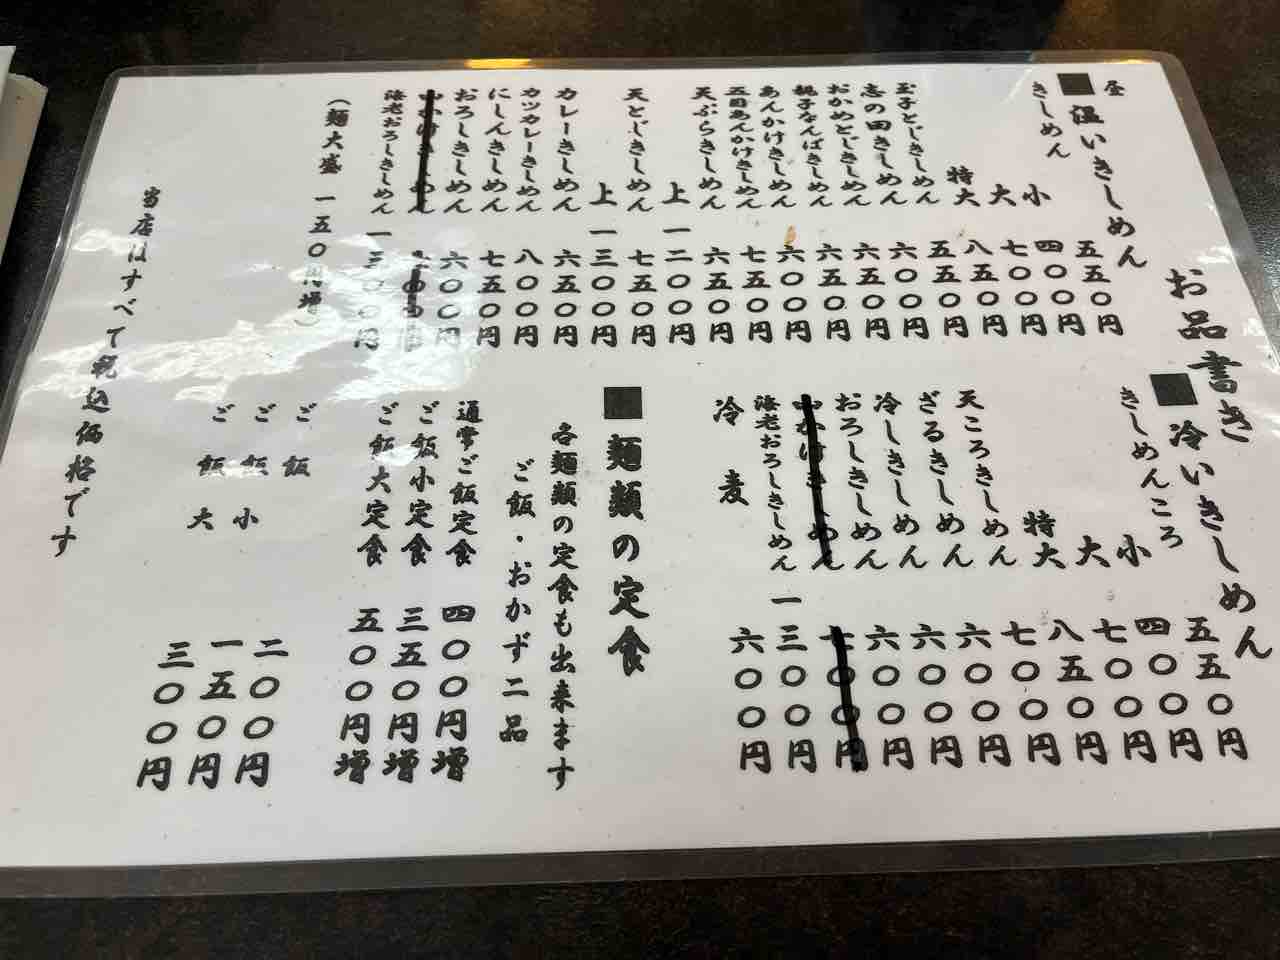 お品書き
屋
■温いきしめん
きしめん 五五〇円
小 四〇〇円
大 七〇〇円
特大 八五〇円
玉子とじきしめん 五五〇円
志の田きしめん 六〇〇円
おかめとじきしめん 六五〇円
親子なんばきしめん 六五〇円
あんかけきしめん 六〇〇円
五目あんかけきしめん 七五〇円
天ぷらきしめん 六五〇円
上 一二〇〇円
天とじきしめん 七五〇円
上 一三〇〇円
カレーきしめん 六五〇円
カツカレーきしめん 八〇〇円
にしんきしめん 七五〇円
おろしきしめん 六〇〇円
山かけきしめん 七〇〇円
海老おろしきしめん 一三〇〇円
(麺大盛 一五〇円増)
当店はすべて税込価格です
■冷いきしめん
きしめんころ 五五〇円
小 四〇〇円
大 七〇〇円
特大 八五〇円
天ころきしめん 七〇〇円
ざるきしめん 六〇〇円
冷しきしめん 六〇〇円
おろしきしめん 六〇〇円
山かけきしめん 七〇〇円
海老おろしきしめん 一三〇〇円
冷麦 六〇〇円
■麺類の定食
各麺類の定食も出来ます
ご飯・おかず二品
通常ご飯定食 四〇〇円増
ご飯小定食 三五〇円増
ご飯大定食 五〇〇円増
ご飯 二〇〇円
ご飯小 一五〇円
ご飯大 三〇〇円